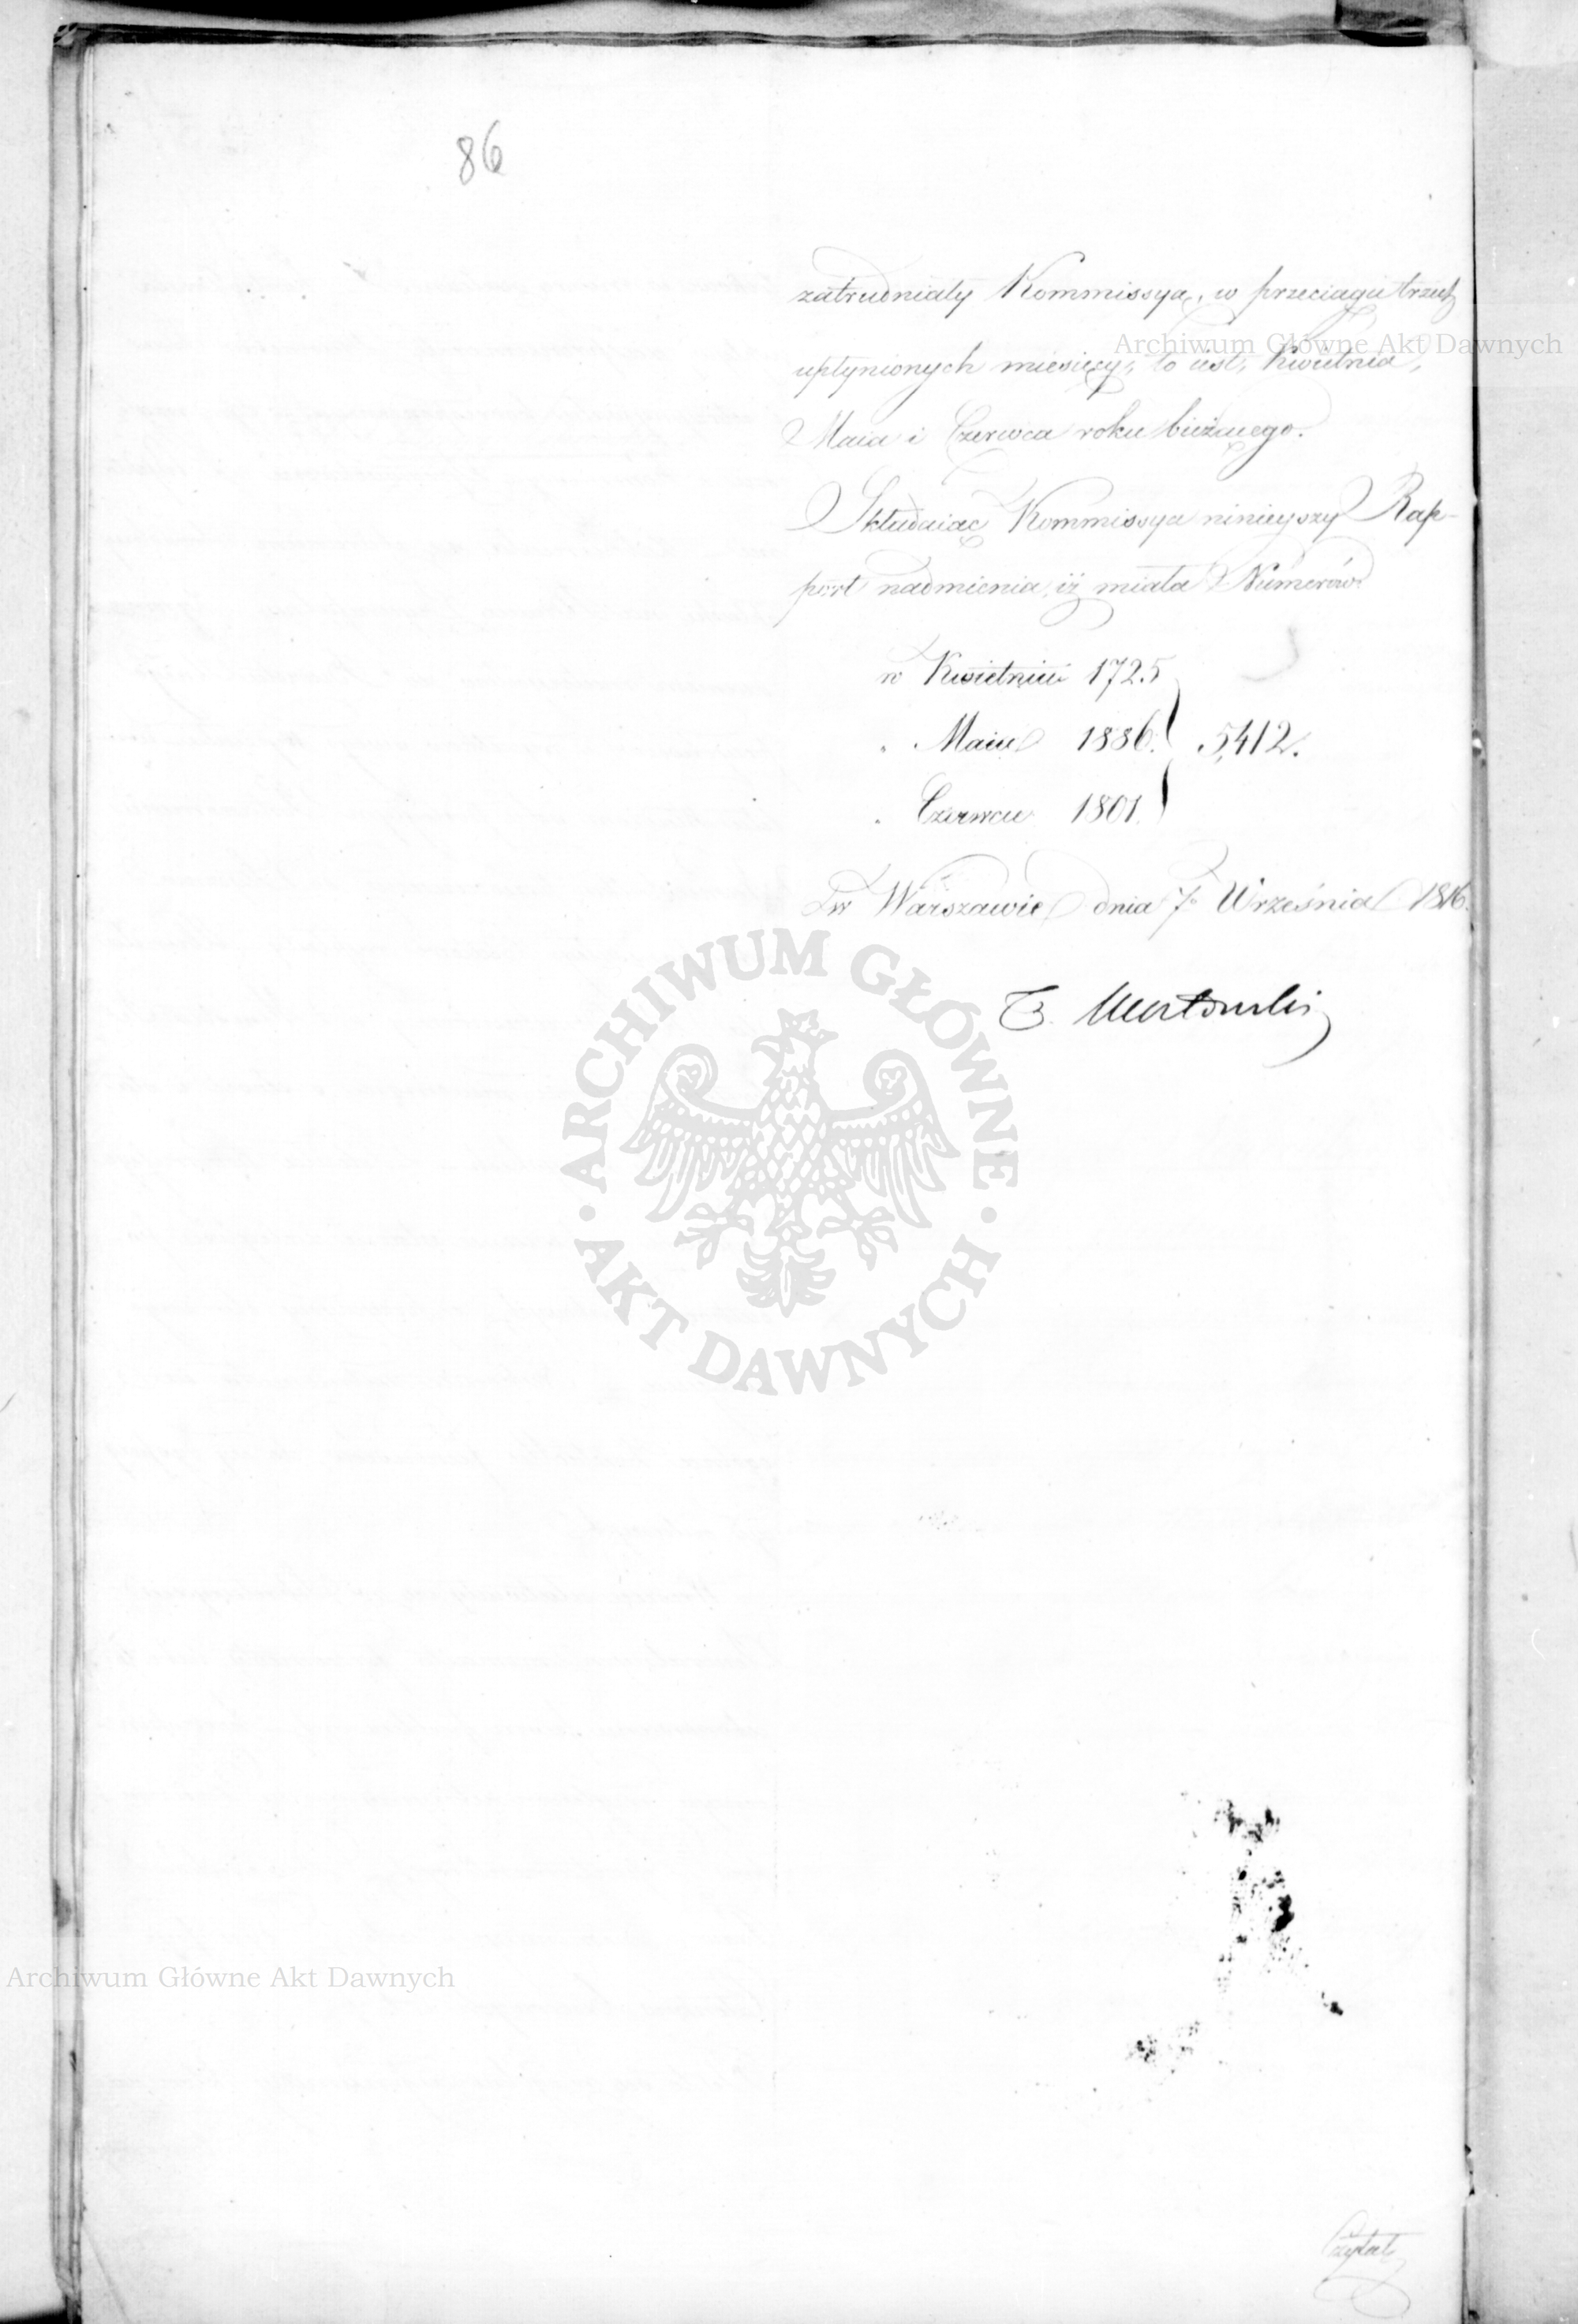 86
zatrudniały Kommissyą, w przeciągu trzech
upłynionych miesięcy, to iest, Kwietnia,
Maia i Czerwca roku bieżącego.
Składaiąc Kommissya ninieyszy Rap-
port nadmienia, iż miała Numerów
w Kwietniu 1725
" Maiu 1886. } 5,412.
" Czerwcu 1801.
w Warszawie dnia 7º Września 1816.
Czytał
Archiwum Główne Akt Dawnych
ARCHIWUM GŁÓWNE AKT DAWNYCH
Archiwum Główne Akt Dawnych